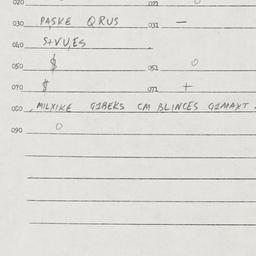 020 021 0
030 PASKE QRUS 031 —
040 S+VU,ES
050 $ 051 0
070 $ 071 +
080 MILXIKE GIBEKS CM BLINCES GIMAXT
090 0